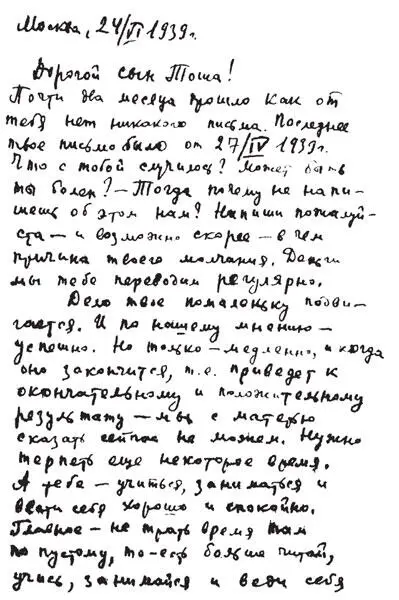 Москва, 24/VI 1939 г.
Дорогой сын Тоша!
Почти два месяца прошло как от
тебя нет никакого письма. Последнее
твое письмо было от 27/IV 1939 г.
Что с тобой случилось? Может быть
ты болен? — Тогда почему не напи-
шешь об этом нам? Напиши пожалуй-
ста — и возможно скорее — в чем
причина твоего молчания. Деньги
мы тебе переводим регулярно.
Дело твое помаленьку подви-
гается. И по нашему мнению —
успешно. Но только — медленно, и когда
оно закончится, т.е. приведет к
окончательному и положительному
результату — мы с матерью
сказать сейчас не можем. Нужно
терпеть еще некоторое время.
А тебе — учиться, заниматься и
вести себя хорошо и спокойно.
Главное — не трать время там
по пустому, то-есть больше читай,
учись, занимайся и веди себя